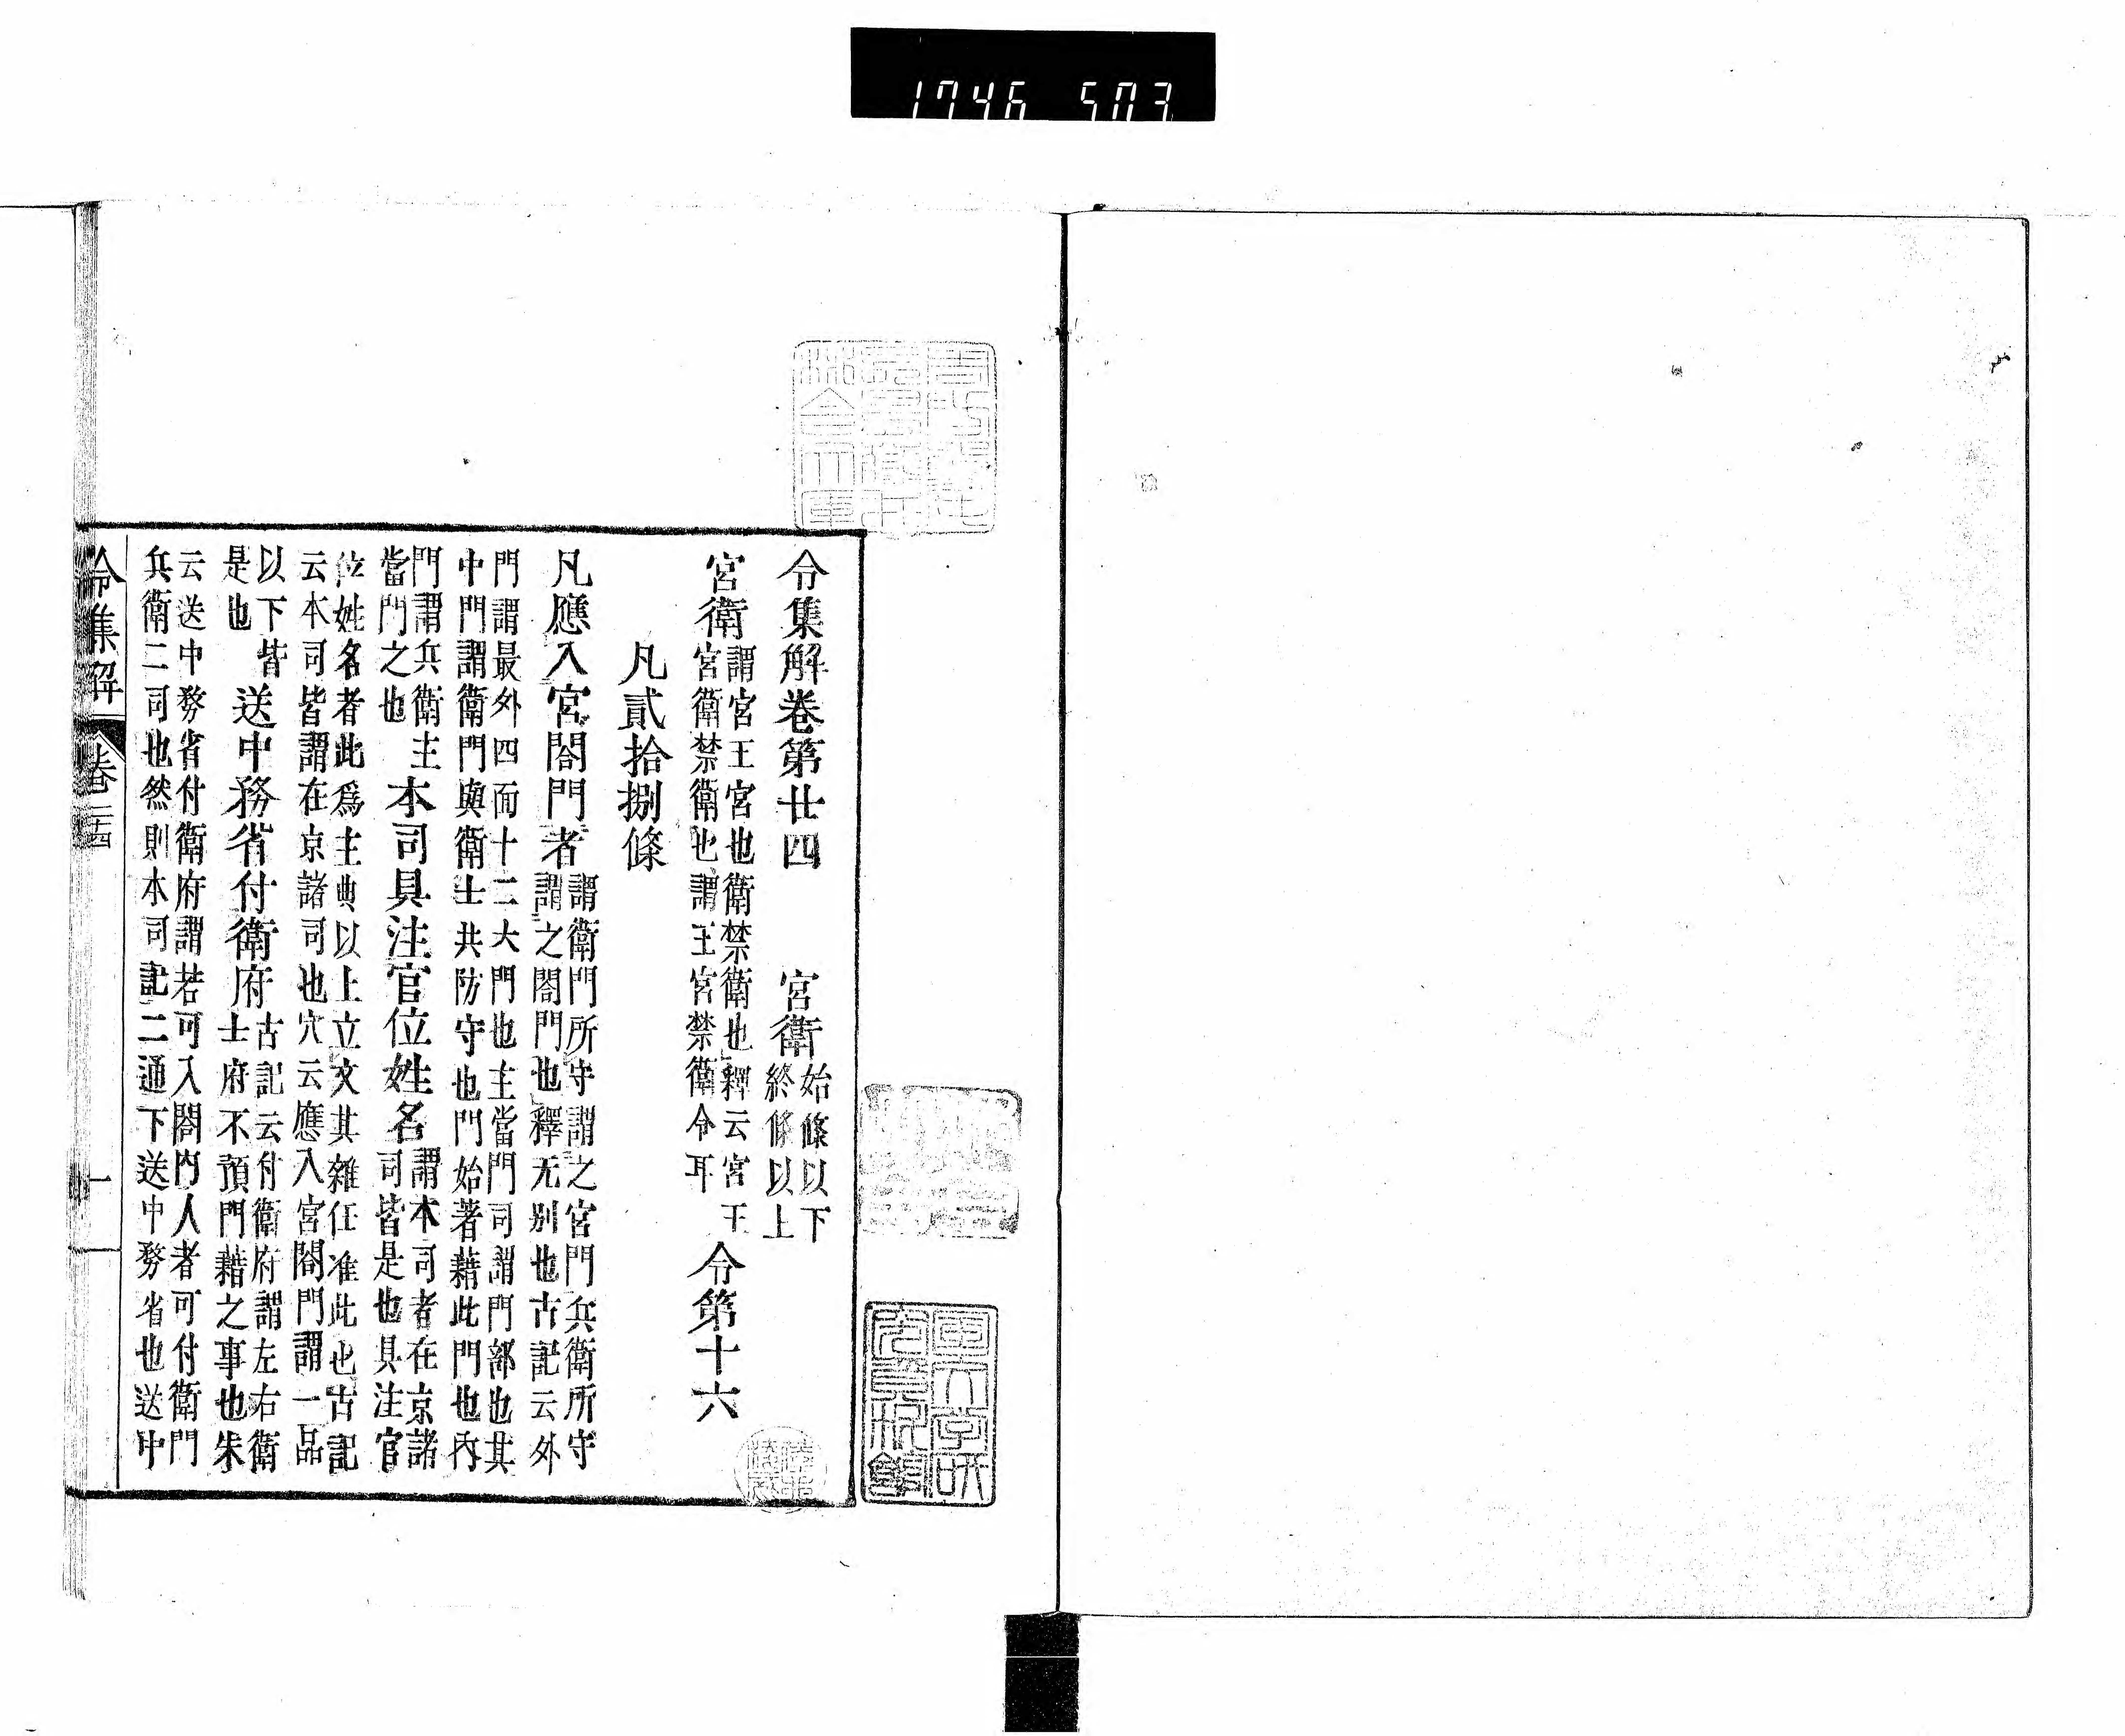 1746 503
令集解卷第廿四 宮衛始條以下
終條以上
宮衛謂宮王宮也衛禁衛也釋云宮王
宮衛禁衛也謂王宮禁衛令耳令第十六
凡貳拾捌條
凡應入宮閤門者謂衛門所守謂之宮門兵衛所守
謂之閤門也釋无別也古記云外
門謂最外四面十二大門也主當門司謂門部也其
中門謂衛門與衛士共防守也門始著藉此門也內
門謂兵衛主
當門之也本司具注官位姓名謂本司者在京諸
司皆是也具注官
位姓名者此爲主典以上立文其雜任准此也古記
云本司皆謂在京諸司也穴云應入宮閤門謂一品
以下皆
是也送中務省付衛府古記云付衛府謂左右衛
士府不預門藉之事也朱
云送中務省付衛府謂若可入閤門人者可付衛門
兵衛二司也然則本司記二通下送中務省也送中
令集解 卷二十四 一